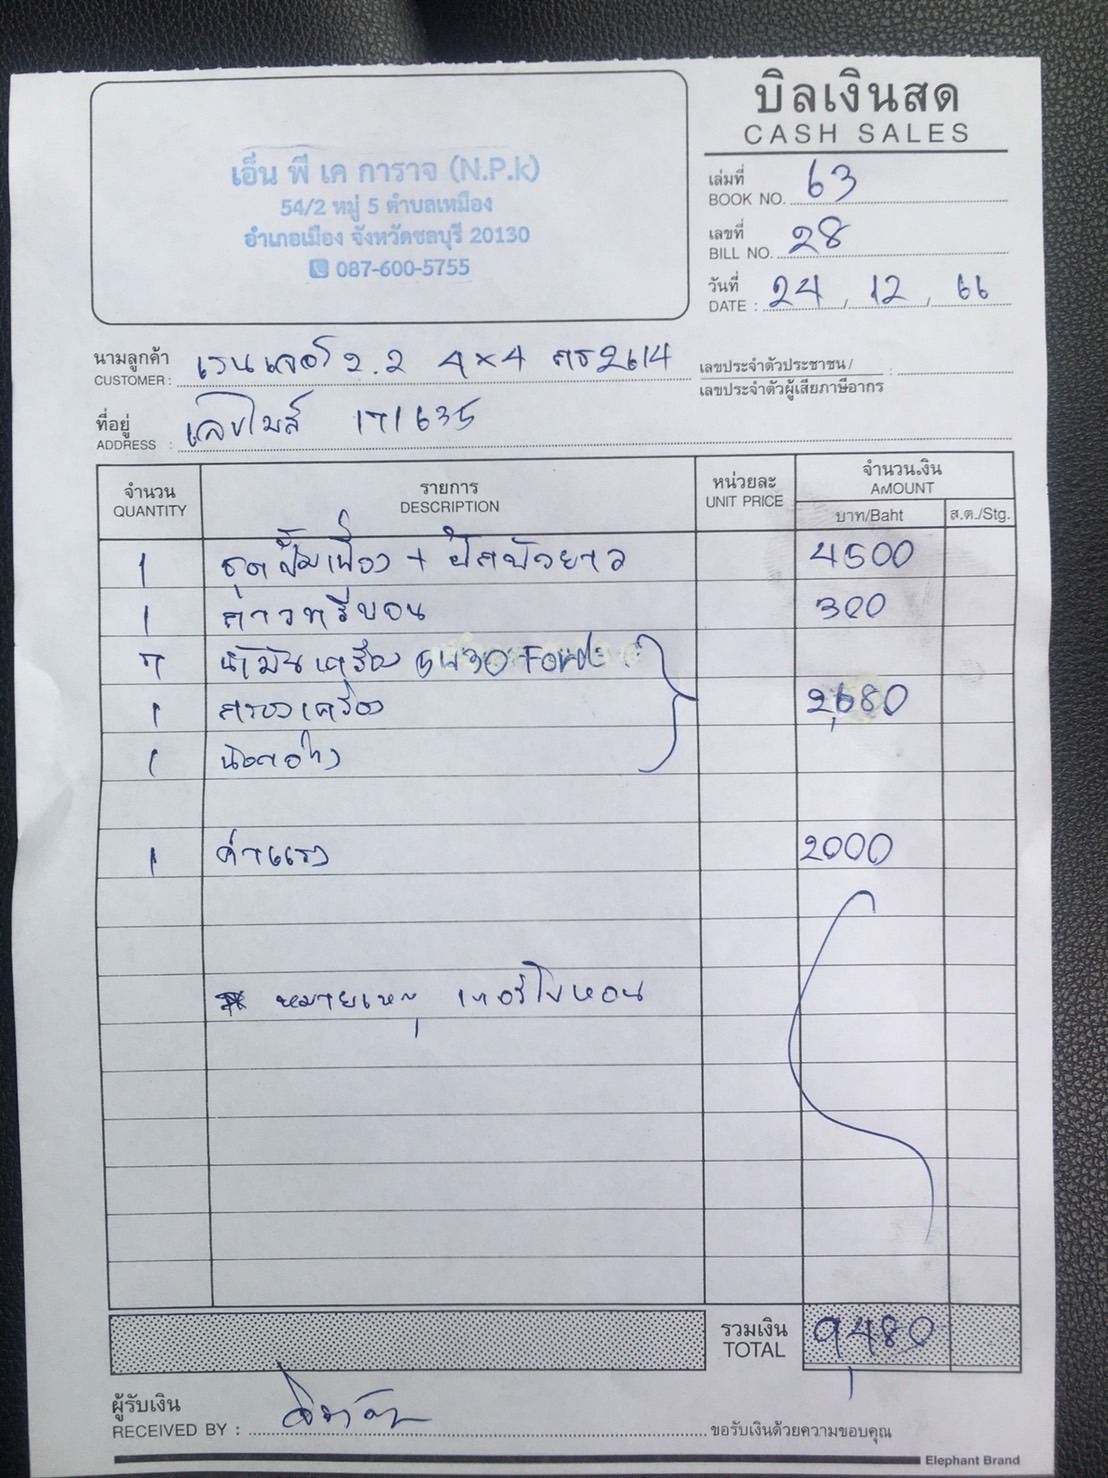 บิลเงินสด
CASH SALES
เอ็น พี เค การาจ (N.P.k)
54/2 หมู่ 5 ตำบลเหมือง
อำเภอเมือง จังหวัดชลบุรี 20130
087-600-5755
เล่มที่
BOOK NO. 63
เลขที่
BILL NO. 28
วันที่
DATE : 24 / 12 / 66
นามลูกค้า
CUSTOMER : เรนเจอร์ 2.2 4x4 2614
เลขประจำตัวประชาชน / :
เลขประจำตัวผู้เสียภาษีอากร
ที่อยู่
ADDRESS : เลขไมล์ 171635
จำนวน รายการ หน่วยละ จำนวนเงิน
QUANTITY DESCRIPTION UNIT PRICE AMOUNT
บาท/Baht ส.ต./Stg.
1 ชุดปั๊มเฟือง + 4500
1 กาวทรีบอน 300
7 น้ำมันเครื่อง 5W30 Ford
1 กรองเครื่อง 2,680
1 น็อตอ่าง
1 ค่าแรง 2000
* หมายเหตุ เทอร์โบหอน
รวมเงิน
TOTAL 9,480
ผู้รับเงิน
RECEIVED BY : ขอรับเงินด้วยความขอบคุณ
Elephant Brand